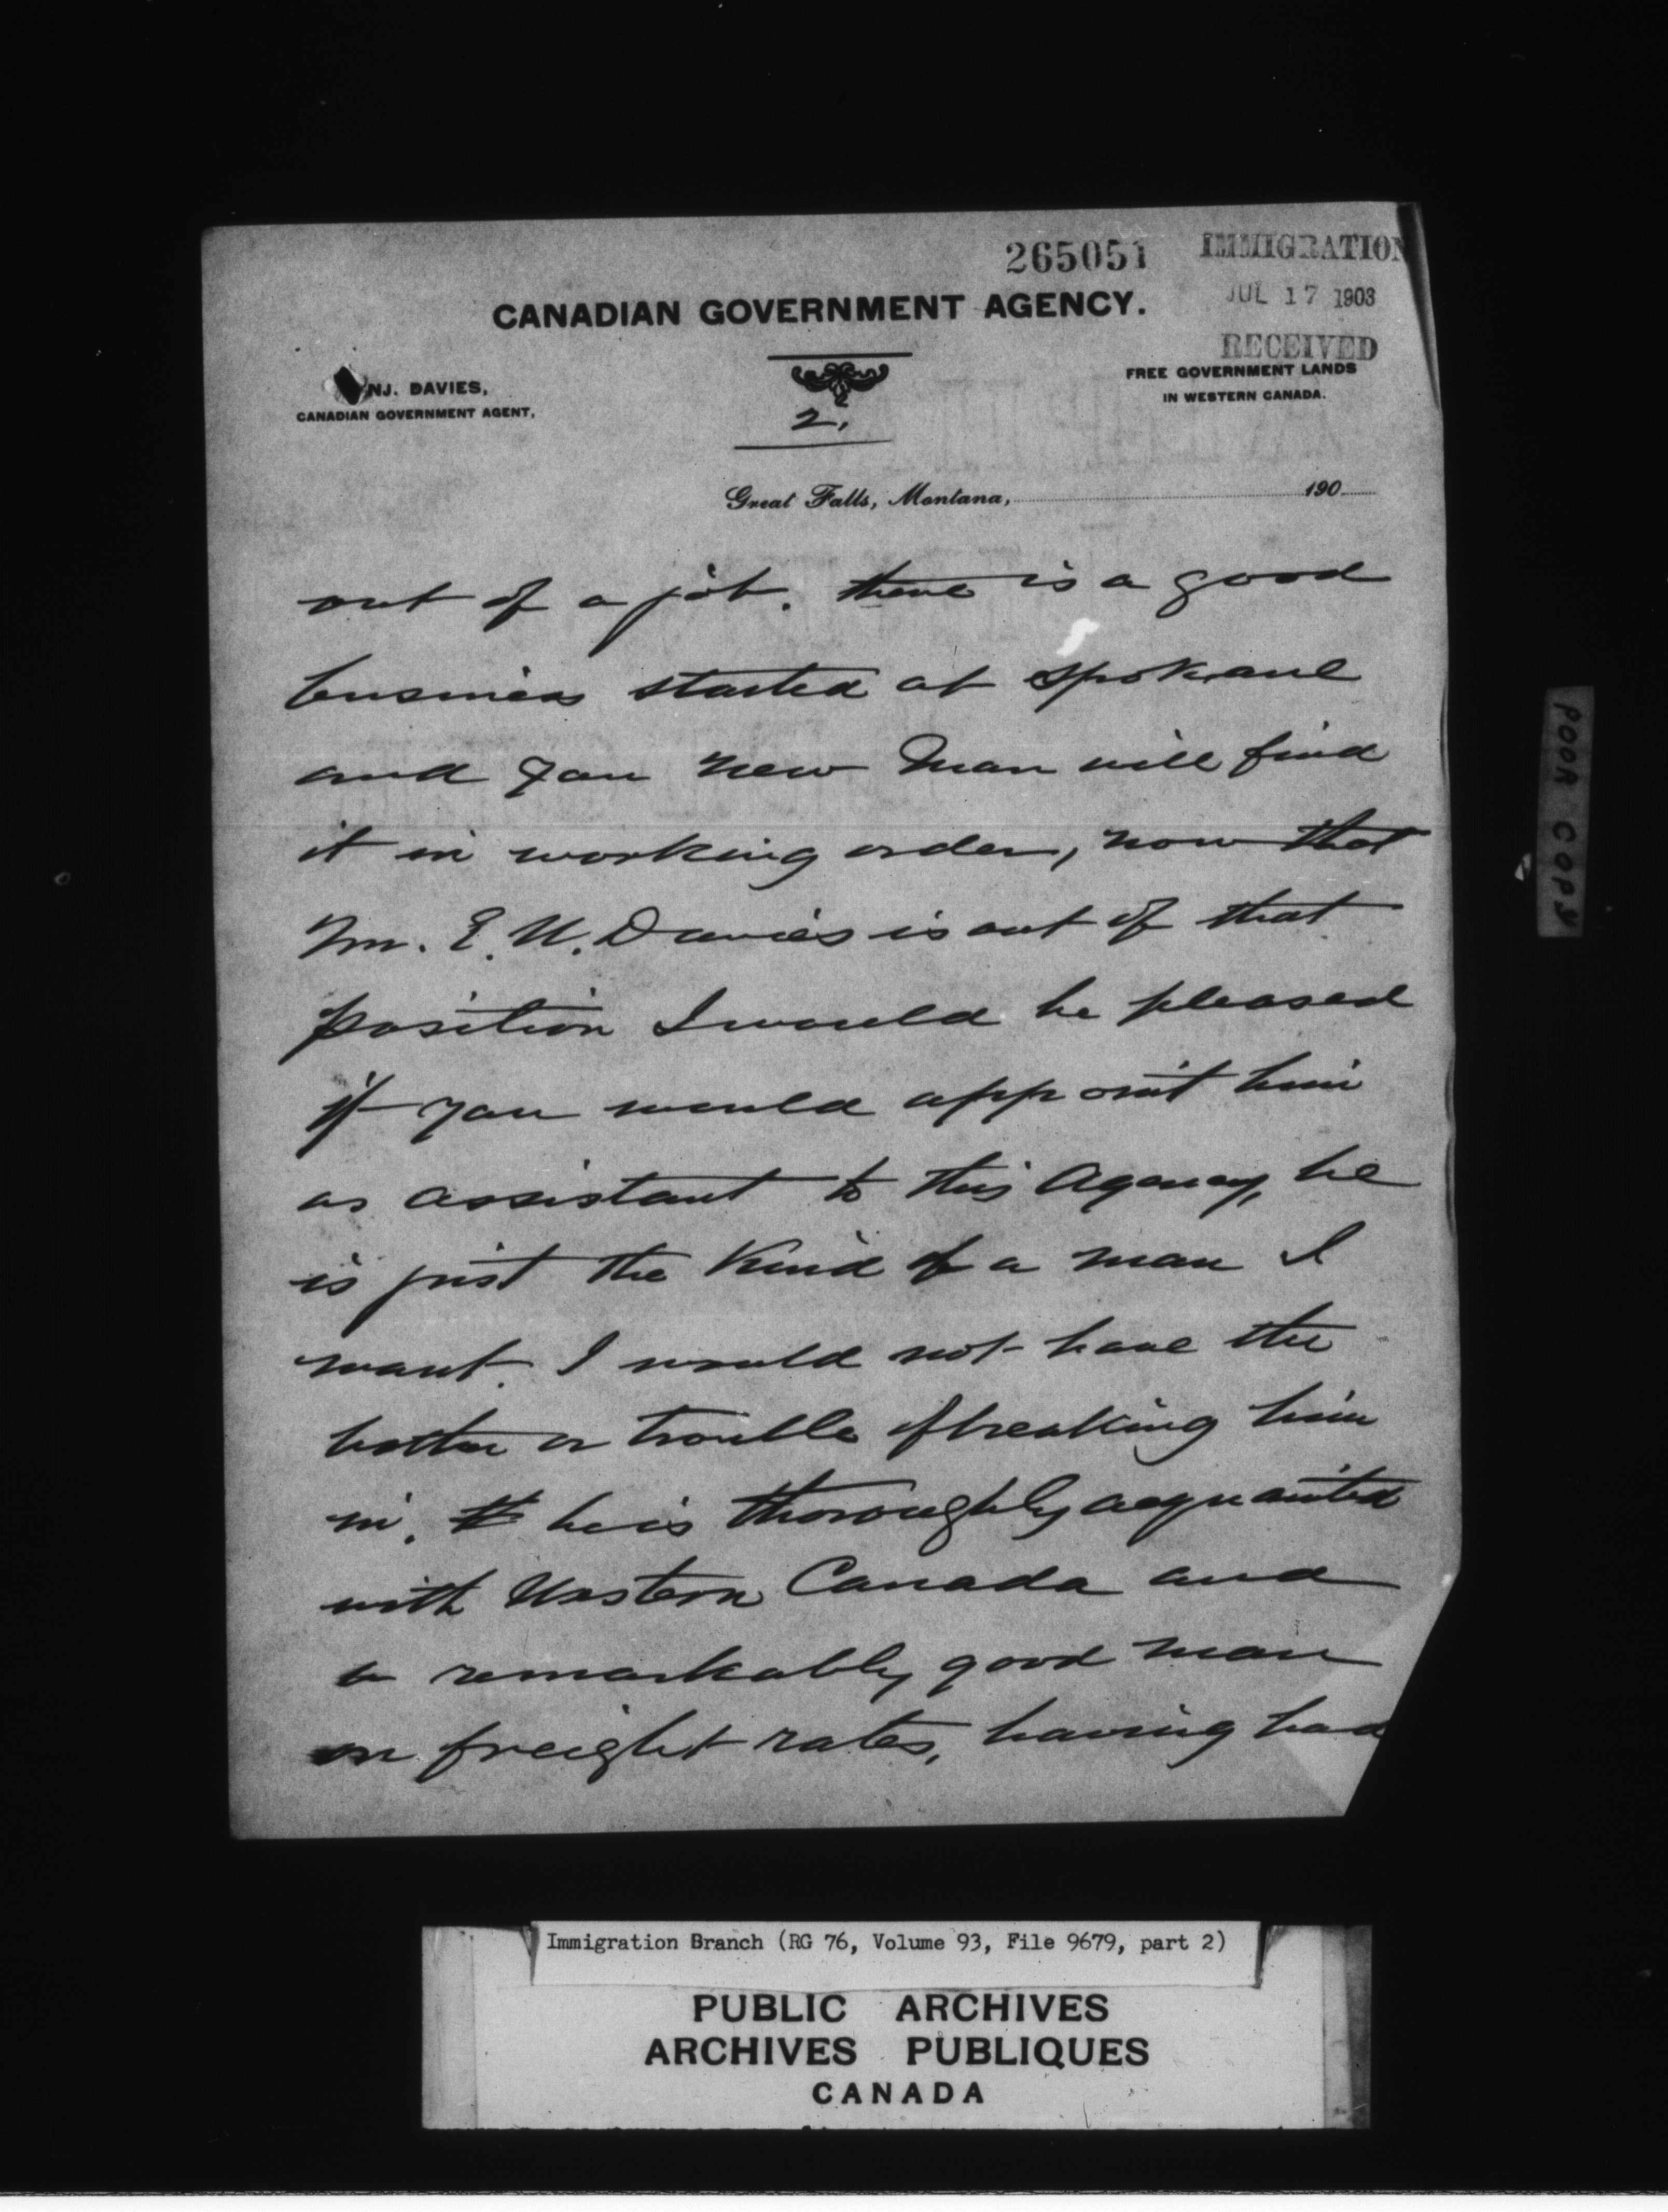 265051
IMMIGRATION
JUL 17 1903
RECEIVED
CANADIAN GOVERNMENT AGENCY.
NJ. DAVIES,
CANADIAN GOVERNMENT AGENT,
FREE GOVERNMENT LANDS
IN WESTERN CANADA.
2.
Great Falls, Montana, 190
out of a job. there is a good
business started at Spokane
and you new man will find
it in working order, now that
Mr. E. W. Davies is out of that
position I would be pleased
if you would appoint him
as assistant to this Agency, he
is just the kind of a man I
want. I would not have the
bother or trouble of breaking him
in. he is thoroughly acquainted
with Western Canada and
a remarkably good man
on freight rates, having had
POOR COPY
Immigration Branch (RG 76, Volume 93, File 9679, part 2)
PUBLIC ARCHIVES
ARCHIVES PUBLIQUES
CANADA